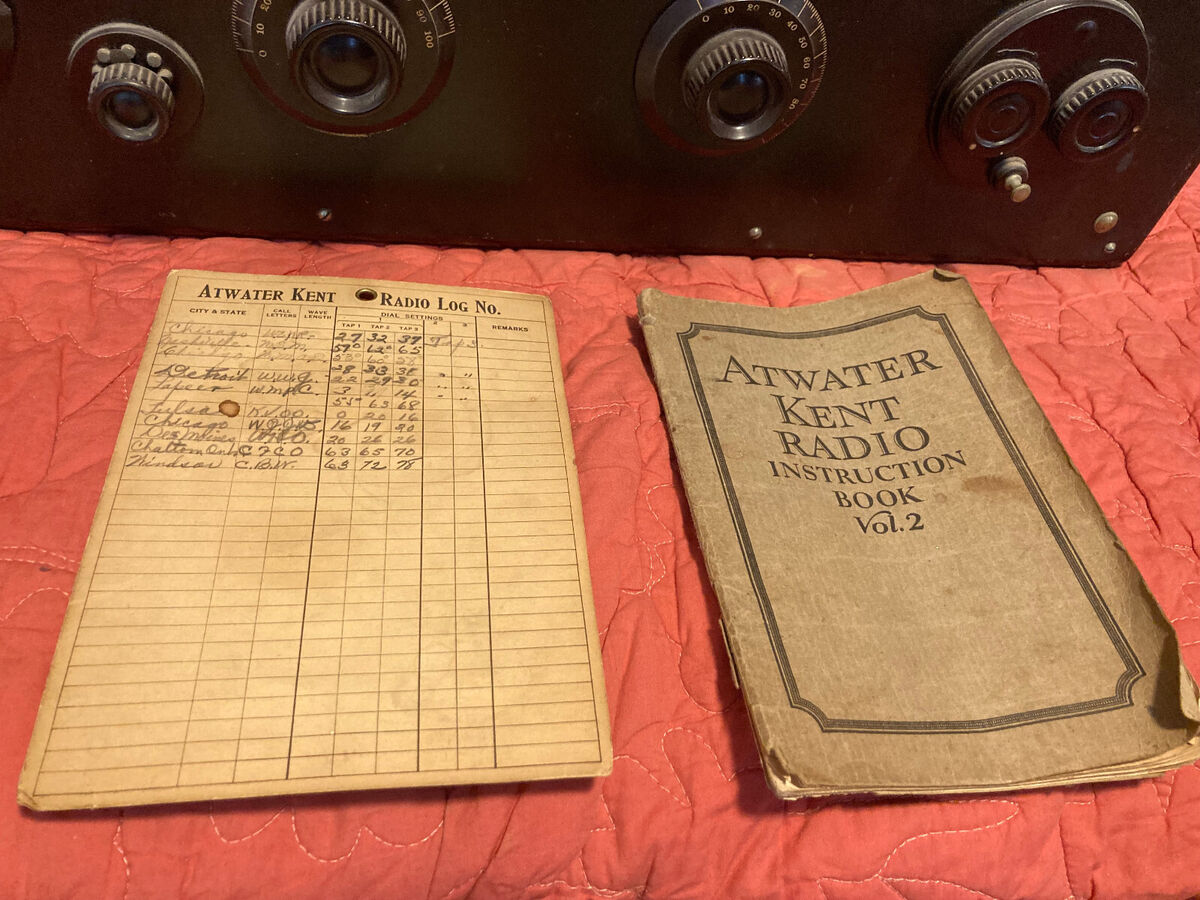 0 10 20 90 100
0 10 20 30 40 50 60 70 80
ATWATER KENT RADIO LOG NO.
CITY & STATE CALL LETTERS WAVE LENGTH DIAL SETTINGS REMARKS
1 2 3
TAP 1 TAP 2 TAP 3
Chicago 27 32 37
Nashville 65
Chicago
Detroit 28 33 38 " "
Lapeer W.M.P.C. 22 29 30 " "
3 14 " "
55 63 68
Tulsa K.V.OO. 0 20 16
Chicago 16 19 20
Des Moines W.H.O. 20 26 26
Chattom Ont C F C O 63 65 70
Windsor C.B.W. 63 72 78
ATWATER
KENT
RADIO
INSTRUCTION
BOOK
Vol. 2